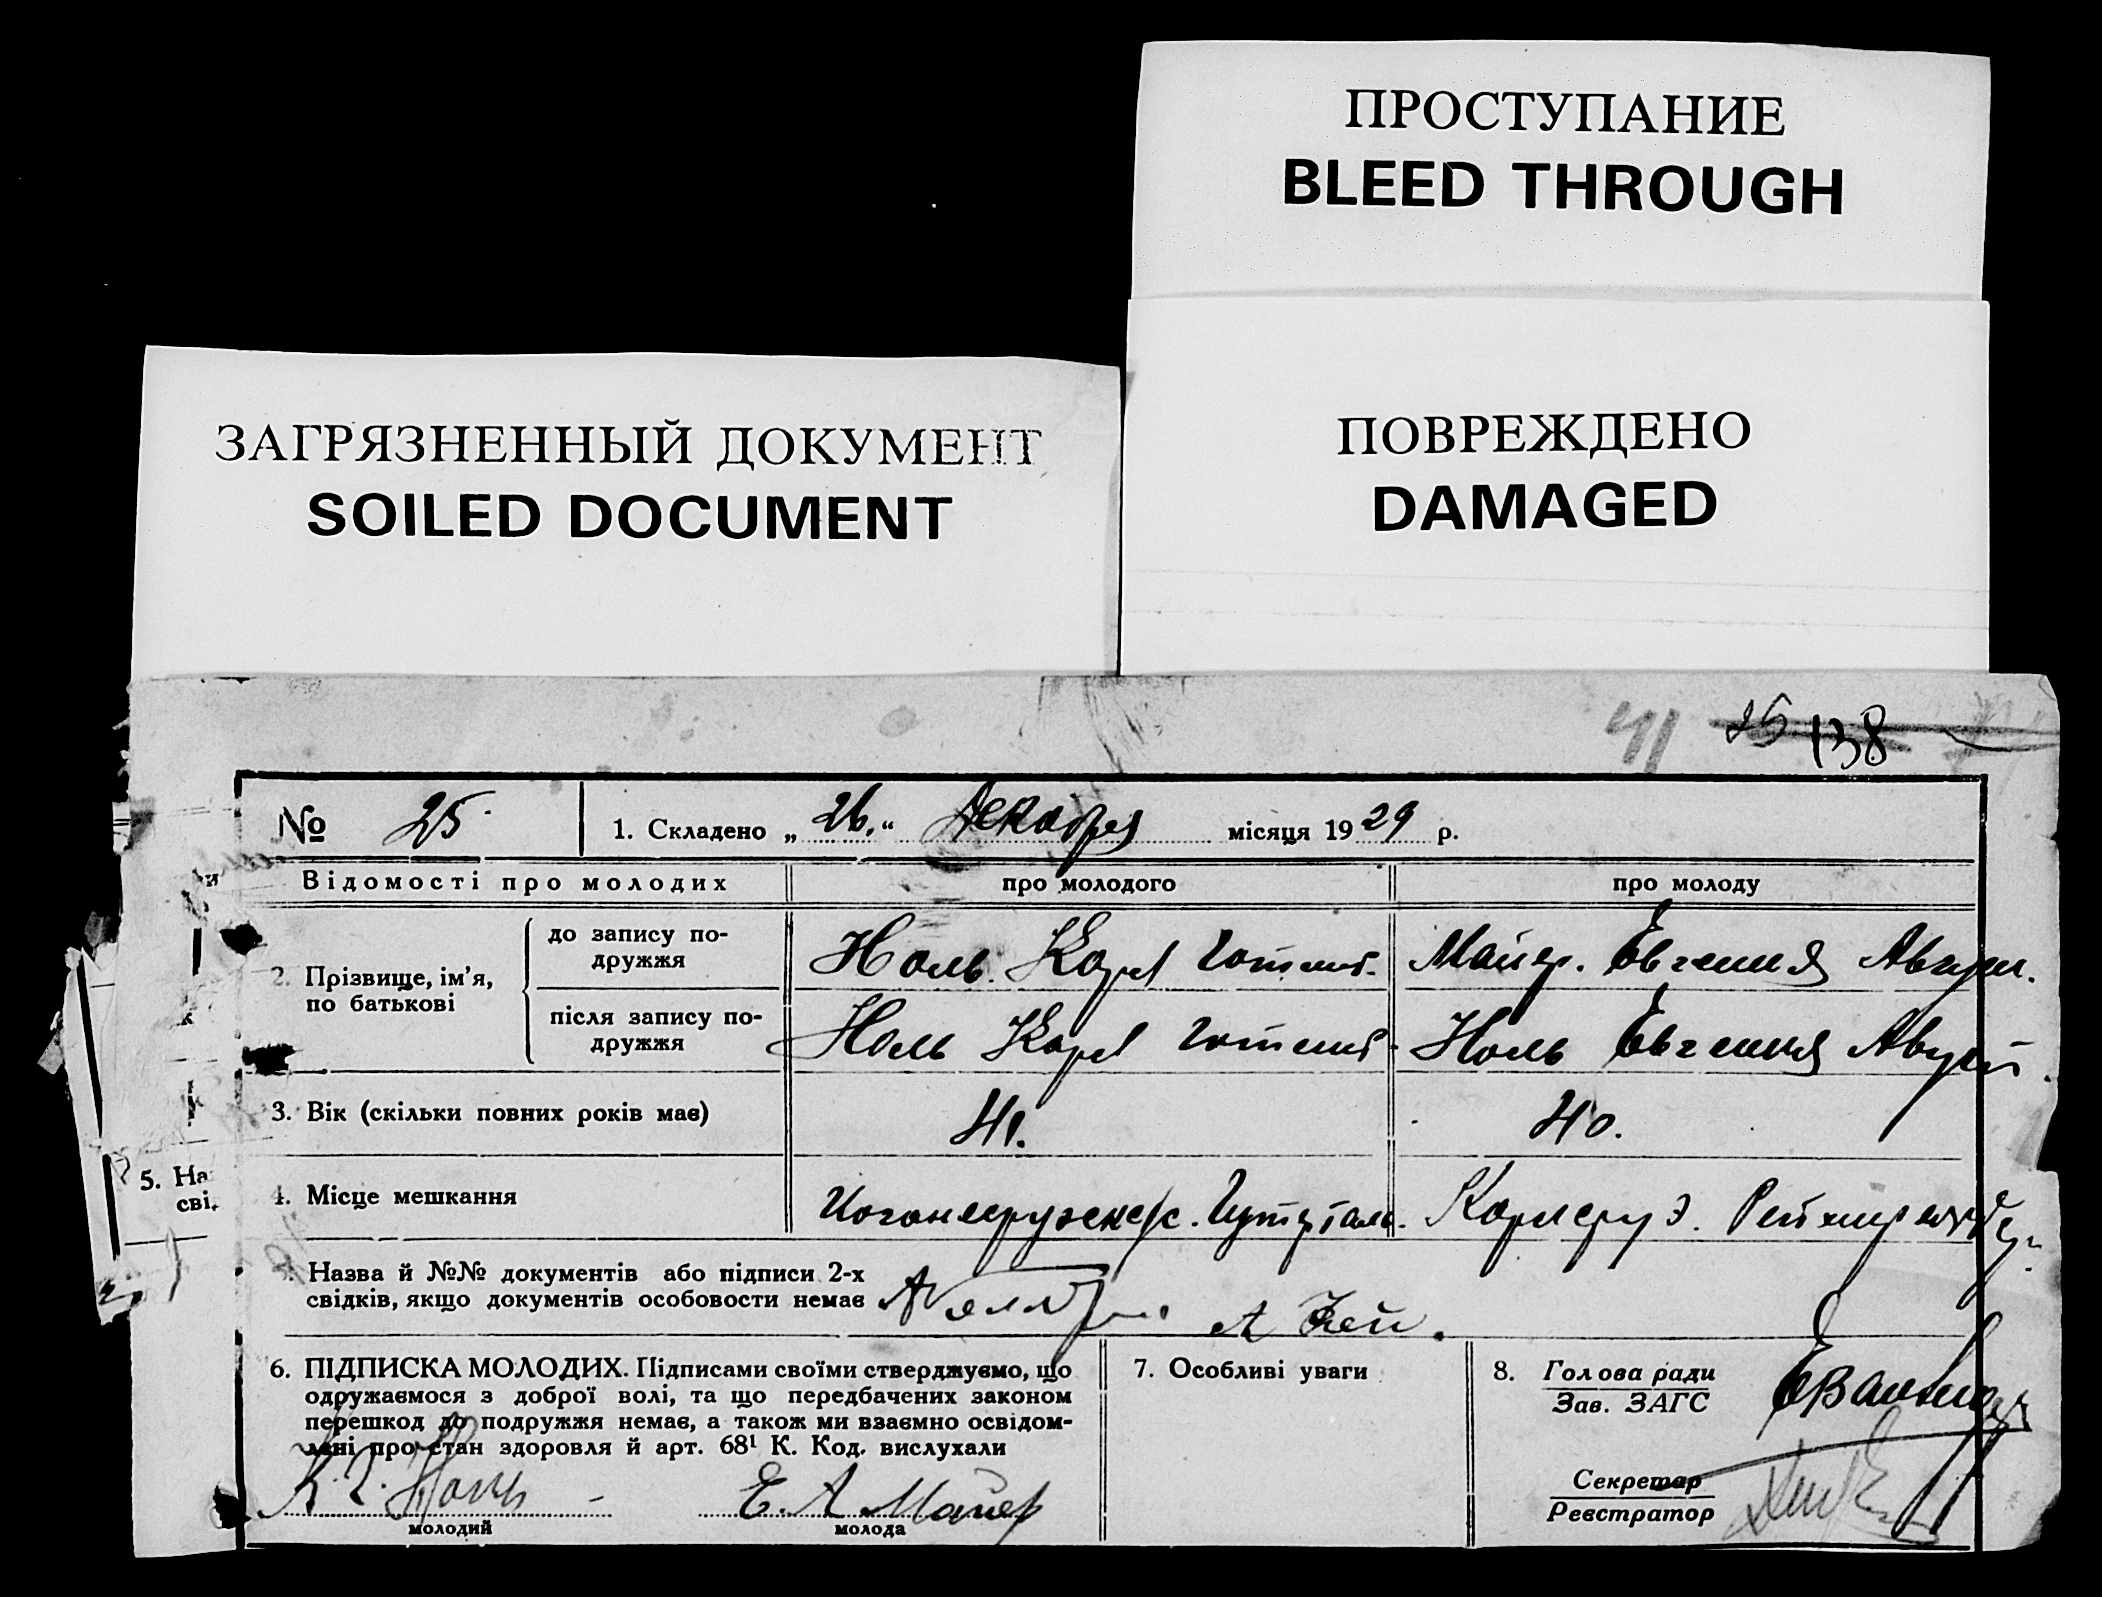 ПРОСТУПАНИЕ
BLEED THROUGH
ЗАГРЯЗНЕННЫЙ ДОКУМЕНТ
SOILED DOCUMENT
ПОВРЕЖДЕНО
DAMAGED
41 25 138
№ 25. 1. Складено „ 26. “ Декабря місяця 19 29 р.
Відомості про молодих про молодого про молоду
2. Прізвище, ім’я, по батькові
до запису подружжя
Ноль. Карл Готлиб. Майер. Евгения
після запису подружжя
Ноль Карл Готлиб. Ноль Евгения
3. Вік (скільки повних років має) 41. 40.
4. Місце мешкання Карлсруэ.
5. На
сві.
5. Назва й №№ документів або підписи 2-х
свідків, якщо документів особовости немає
6. ПІДПИСКА МОЛОДИХ. Підписами своїми стверджуємо, що
одружаємося з доброї волі, та що передбачених законом
перешкод до подружжя немає, а також ми взаємно освідом-
лені про стан здоровля й арт. 68¹ К. Код. вислухали
К. Г. Ноль Е. А Майер
молодий молода
7. Особливі уваги
8. Голова ради
Зав. ЗАГС
Секретар
Реєстратор